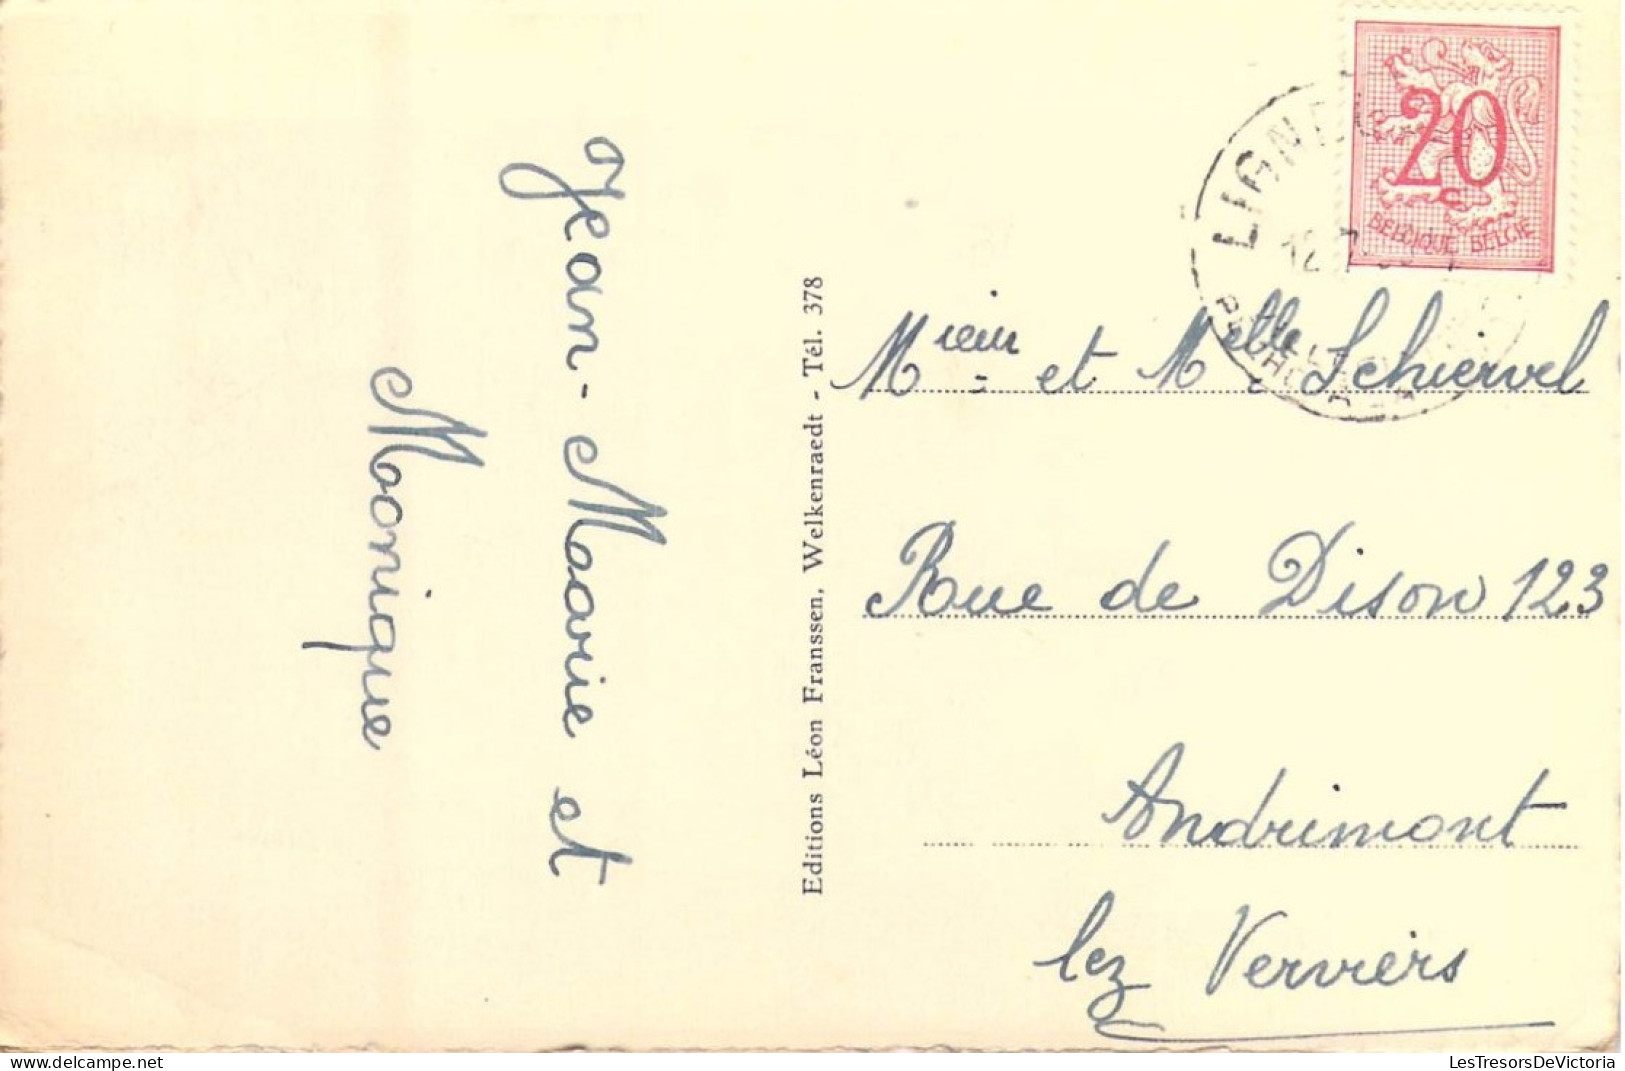 Jean-Marie et
Monique
Editions Léon Franssen, Welkenraedt - Tél. 378
20
BELGIQUE BELGIE
Mrieur et Melle Schiervel
Rue de Dison 123
Andrimont
lez Verviers
delcampe.net
LesTresorsDeVictoria